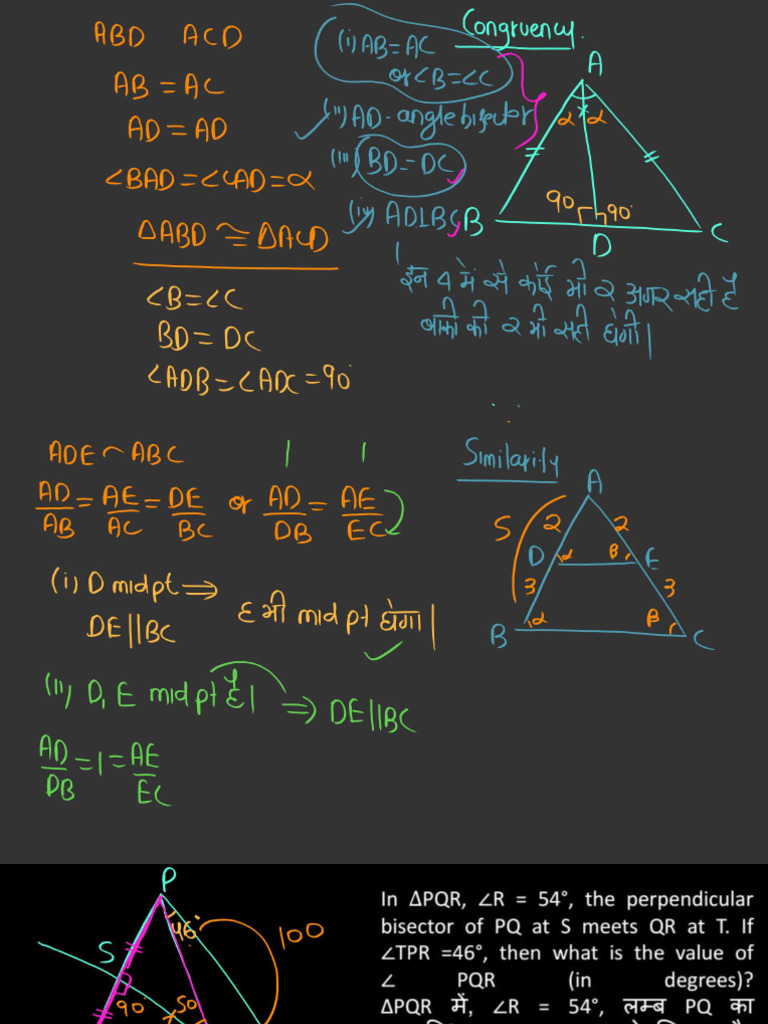 ABD ACD
AB = AC
AD = AD
∠BAD = ∠CAD = α
ΔABD ≅ ΔACD
∠B = ∠C
BD = DC
∠ADB = ∠ADC = 90°
Congruency.
(i) AB = AC
or ∠B = ∠C
(ii) AD - angle bisector
(iii) BD = DC
(iv) AD ⊥ BC
A
α α
90 90°
B D C
इन 4 में से कोई भी 2 अगर सही है
बाकी की 2 भी सही होंगी।
ADE ~ ABC
AD/AB = AE/AC = DE/BC or AD/DB = AE/EC
(i) D mid pt ⇒
DE || BC
E भी mid pt होगा।
(ii) D, E mid pt है। ⇒ DE || BC
AD/DB = 1 = AE/EC
Similarity
A
5 2 2
D α β E
3 3
B α β C
P
46°
100
S
90 50
In ΔPQR, ∠R = 54°, the perpendicular
bisector of PQ at S meets QR at T. If
∠TPR =46°, then what is the value of
∠ PQR (in degrees)?
ΔPQR में, ∠R = 54°, लम्ब PQ का